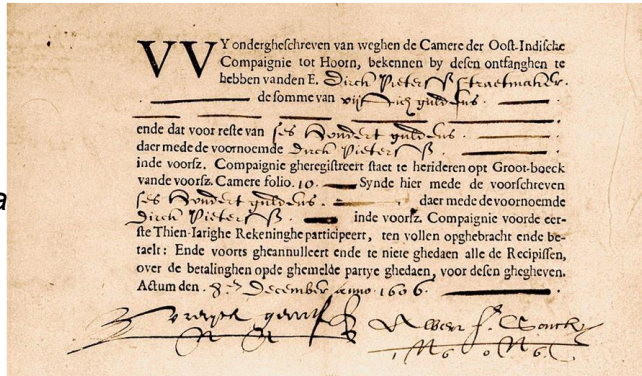 a
VVY ondergheschreven van weghen de Camere der Oost-Indische
Compaignie tot Hoorn, bekennen by desen ontfanghen te
hebben vanden E. Dirck Pietersz Straetmaker.
de somme van vijftich guldens.
ende dat voor reste van ses hondert guldens.
daer mede de voornoemde Dirck Pietersz.
inde voorsz. Compaignie gheregistreert staet te herideren opt Groot-boeck
vande voorsz. Camere folio. 10. Synde hier mede de voorschreven
ses hondert guldens. daer mede de voornoemde
Dirck Pietersz. inde voorsz. Compaignie voorde eer-
ste Thien-Iarighe Rekeninghe participeert, ten vollen opghebracht ende be-
taelt: Ende voorts gheannulleert ende te niete ghedaen alle de Recipissen,
over de betalinghen opde ghemelde partye ghedaen, voor desen ghegheven.
Actum den. December anno. 1606.
1606